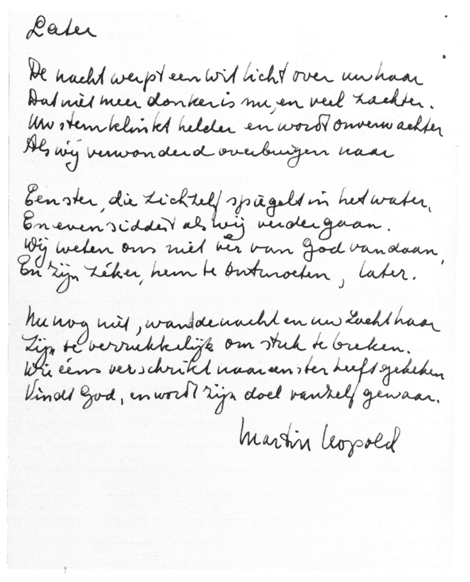 Later
De nacht werpt een wit licht over uw haar
Dat niet meer donker is nu, en veel zachter.
Uw stem klinkt helder en wordt onverwachter
Als wij verwonderd overbuigen naar
Een ster, die zichzelf spiegelt in het water,
En even siddert als wij verder gaan.
Wij weten ons niet vèr van God vandaan,
En zijn zéker, hem te ontmoeten, later.
Nu nog niet, want de nacht en uw zacht haar
Zijn te verrukkelijk om stuk te breken.
Wie ééns verschrikt naar een ster heeft gekeken
Vindt God, en wordt zijn doel vanzelf gewaar.
Martin Leopold